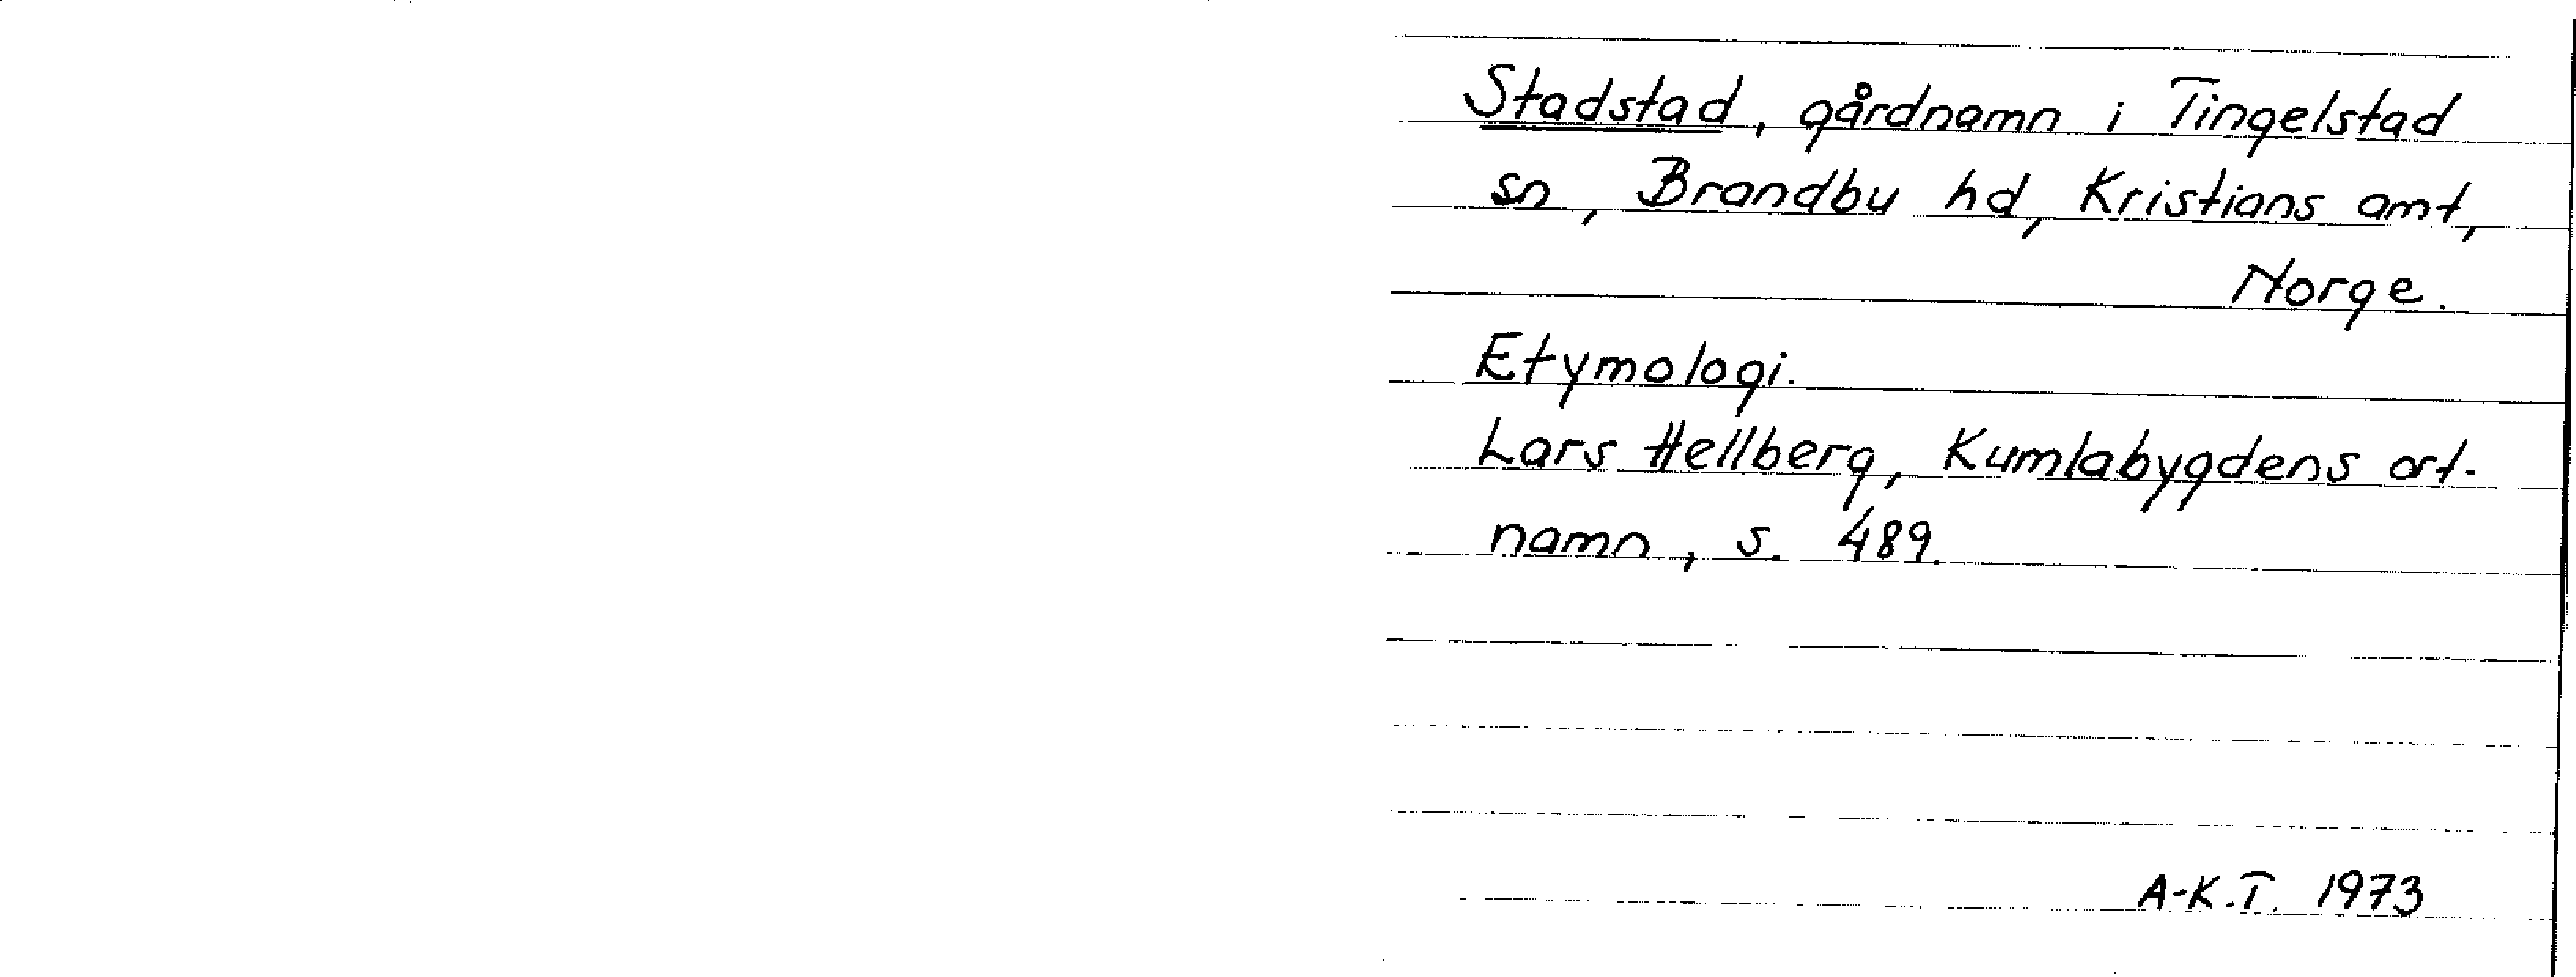 Stadstad, gårdnamn i Tingelstad
sn, Brandbu hd, Kristians amt,
Norge.
Etymologi.
Lars Hellberg, Kumlabygdens ort-
namn, s. 489.
A-K.T. 1973